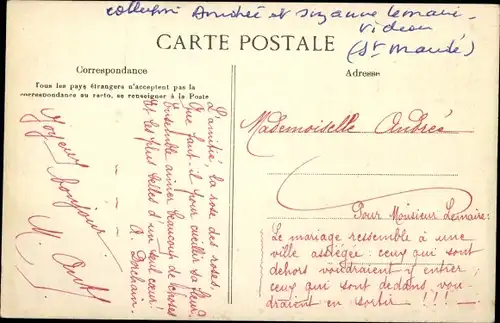 collection Andrée et suzanne lemaire
videau
(St Mandé)
CARTE POSTALE
Correspondance
Tous les pays étrangers n'acceptent pas la
correspondance au recto, se renseigner à la Poste
Adresse
Joyeux
Bonjour
M.
L'amitié, la rose des roses,
Que faut-il pour cueillir sa fleur
Ensemble aimer beaucoup de choses
Et les plus belles d'un seul cœur!
A. Dorchain.
Mademoiselle Andrée
Pour Monsieur Lemaire:
Le mariage ressemble à une
ville assiégée: ceux qui sont
dehors voudraient y entrer;
ceux qui sont dedans, vou-
draient en sortir !!! —